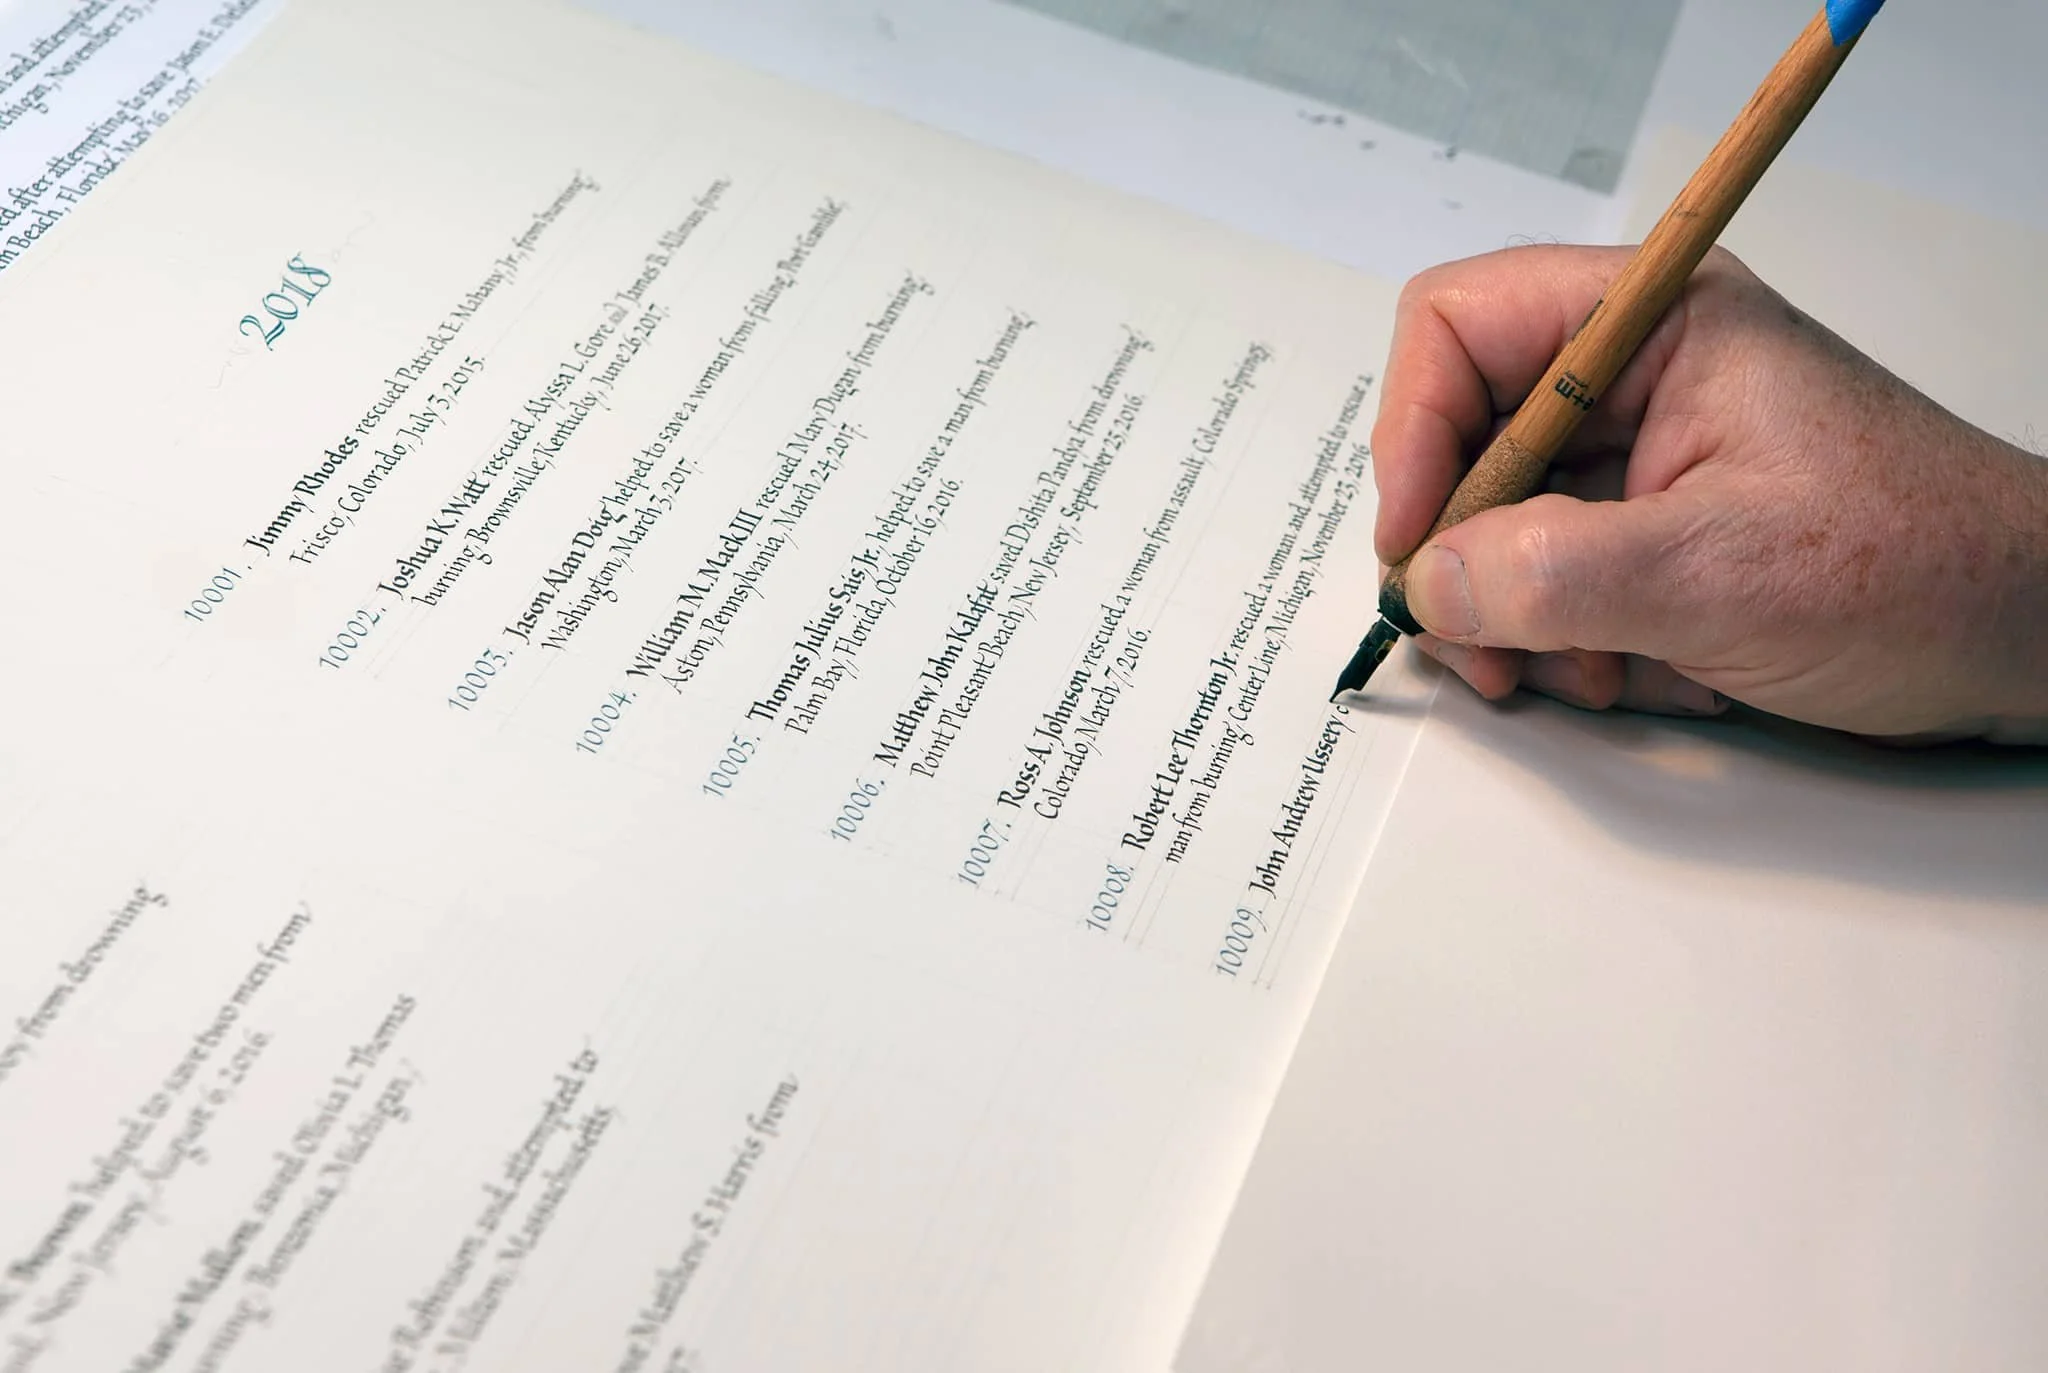 and attempted
chigan, November 23, 2
ed after attempting to save Jason E. Dela
m Beach, Florida, May 16, 2017
2018
10001. Jimmy Rhodes rescued Patrick E. Mahany, Jr., from burning,
Frisco, Colorado, July 3, 2015.
10002. Joshua K. Watt rescued Alyssa L. Gore and James B. Allman from
burning, Brownsville, Kentucky, June 26, 2017.
10003. Jason Alan Doig helped to save a woman from falling, Port Gamble,
Washington, March 3, 2017.
10004. William M. Mack III rescued Mary Dugan from burning,
Aston, Pennsylvania, March 24, 2017.
10005. Thomas Julius Sais, Jr., helped to save a man from burning,
Palm Bay, Florida, October 16, 2016.
10006. Matthew John Kalafat saved Dishita Pandya from drowning,
Point Pleasant Beach, New Jersey, September 25, 2016.
10007. Ross A. Johnson rescued a woman from assault, Colorado Springs,
Colorado, March 7, 2016.
10008. Robert Lee Thornton Jr. rescued a woman and attempted to rescue a
man from burning, Center Line, Michigan, November 23, 2016
10009. John Andrew Ussery
from drowning
Brown helped to save two men from
New Jersey, August 6, 2016.
Marie Mullens saved Olivia L. Thomas
Benzonia, Michigan,
Robinson and attempted to
Milton, Massachusetts,
Matthew S. Harris from
e+m